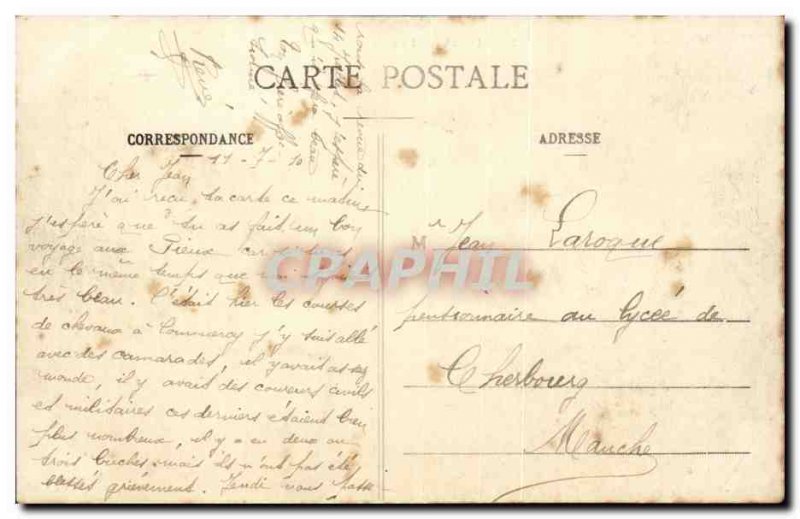 CARTE POSTALE
CORRESPONDANCE
ADRESSE
11-7-10
Cher Jean
J'ai reçu ta carte ce matin,
j'espère que tu as fait un bon
voyage aux Pieux car
en le même temps que
très beau. C'était hier les courses
de chevaux à Commercy j'y suis allé
avec des camarades, il y avait assez
monde, il y avait des coureurs civils
et militaires ces derniers étaient bien
plus nombreux, il y a eu deux ou
trois bûches, mais ils n'ont pas été
blessés grièvement. Jeudi nous passe
rons la revue du
14 juillet, j'espère
beau
Ton frère
René
Mr Jean Laroque
pensionnaire au lycée de
Cherbourg
Manche
CPAPHIL